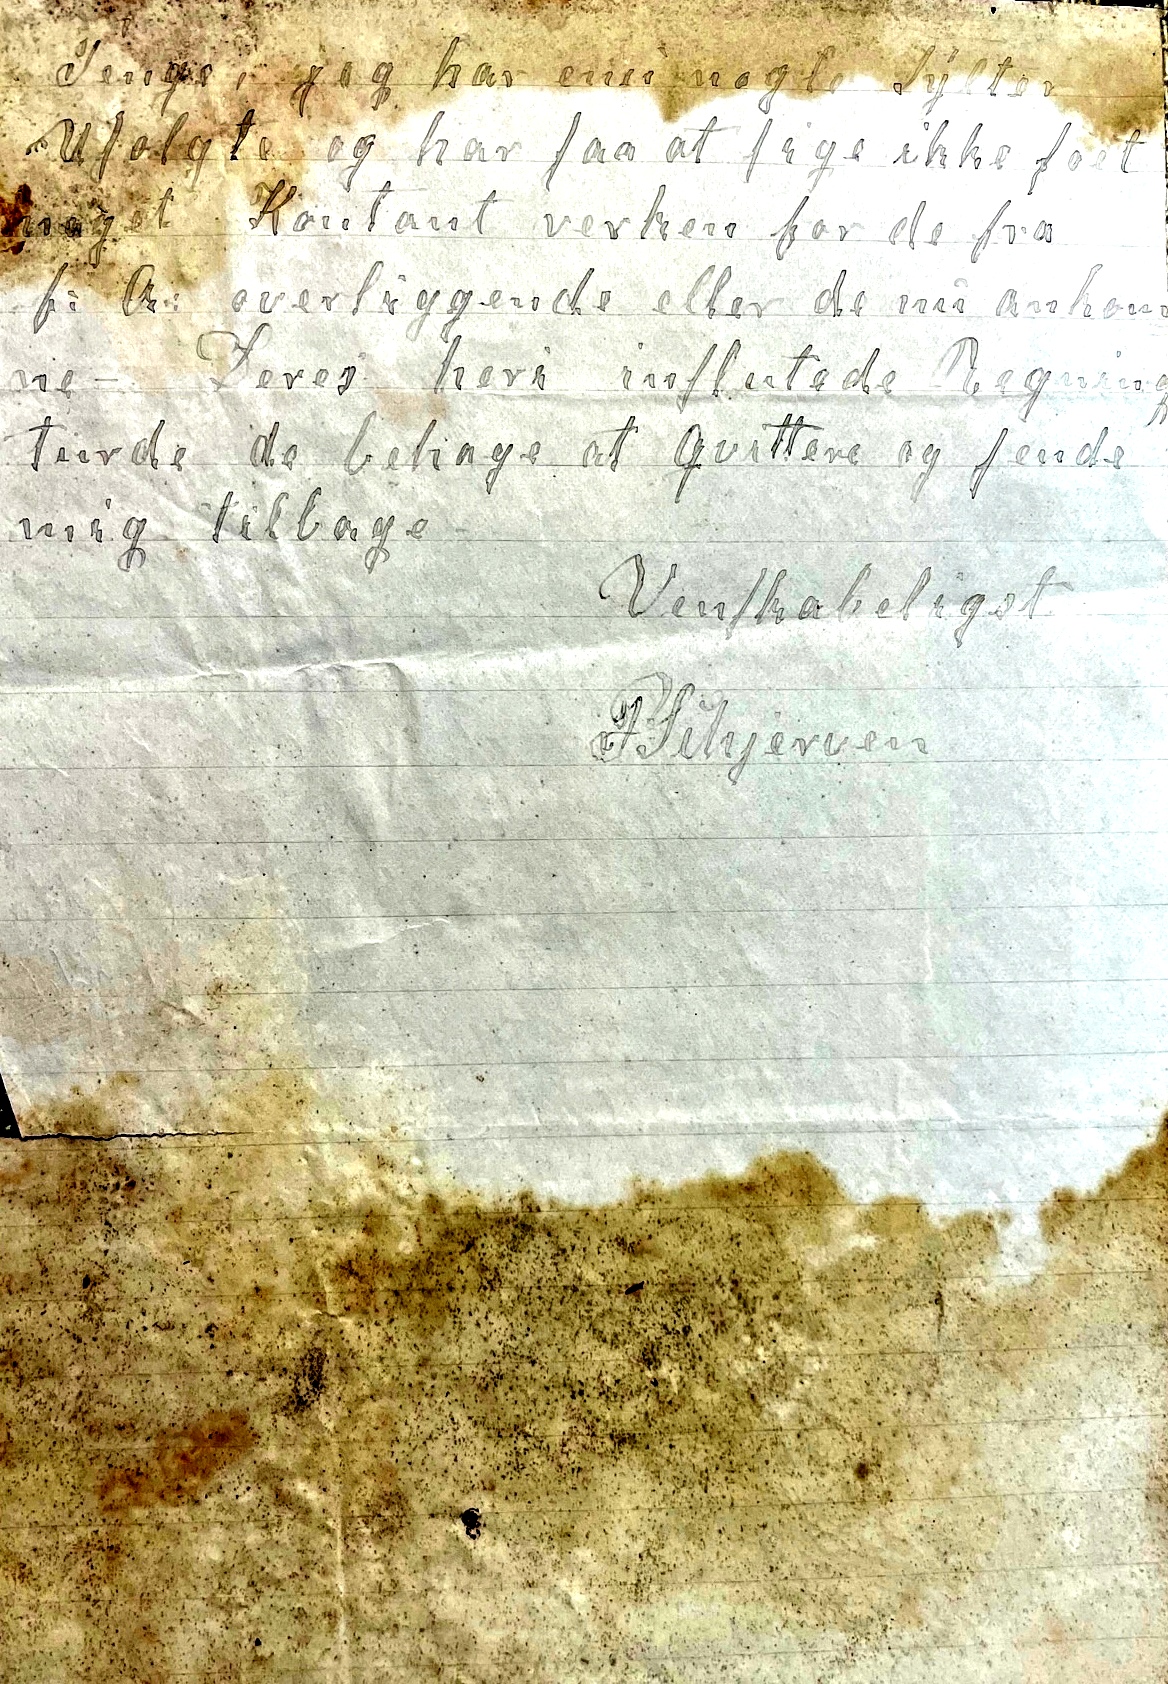 Penge, jeg har enn nogle Sylter
Usolgte og har saa at sige ikke foet
noget Kontant verken for de fra
f: A: overliggende eller de nu ankom
ne - Deres heri inslutede Regning
turde de behage at Qvittere og sende
mig tilbage
Venskabeligst